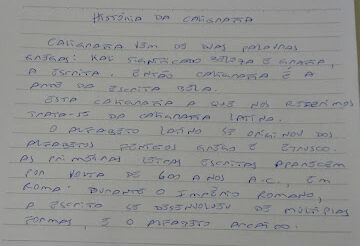 HISTÓRIA DA CALIGRAFIA
CALIGRAFIA VEM DE DUAS PALAVRAS
GREGAS: KALI SIGNIFICADO BELEZA E GRAFIA,
A ESCRITA. ENTÃO CALIGRAFIA É A
ARTE DA ESCRITA BELA.
ESTA CALIGRAFIA A QUE NOS REFERIMOS
TRATA-SE DA CALIGRAFIA LATINA.
O ALFABETO LATINO SE ORIGINOU DOS
ALFABETOS FENÍCIOS GREGO E ETRUSCO.
AS PRIMEIRAS LETRAS ESCRITAS APARECEM
POR VOLTA DE 600 ANOS A.C., EM
ROMA. DURANTE O IMPÉRIO ROMANO,
A ESCRITA SE DESENVOLVEU DE MÚLTIPLAS
FORMAS, E O ALFABETO ARCAICO.